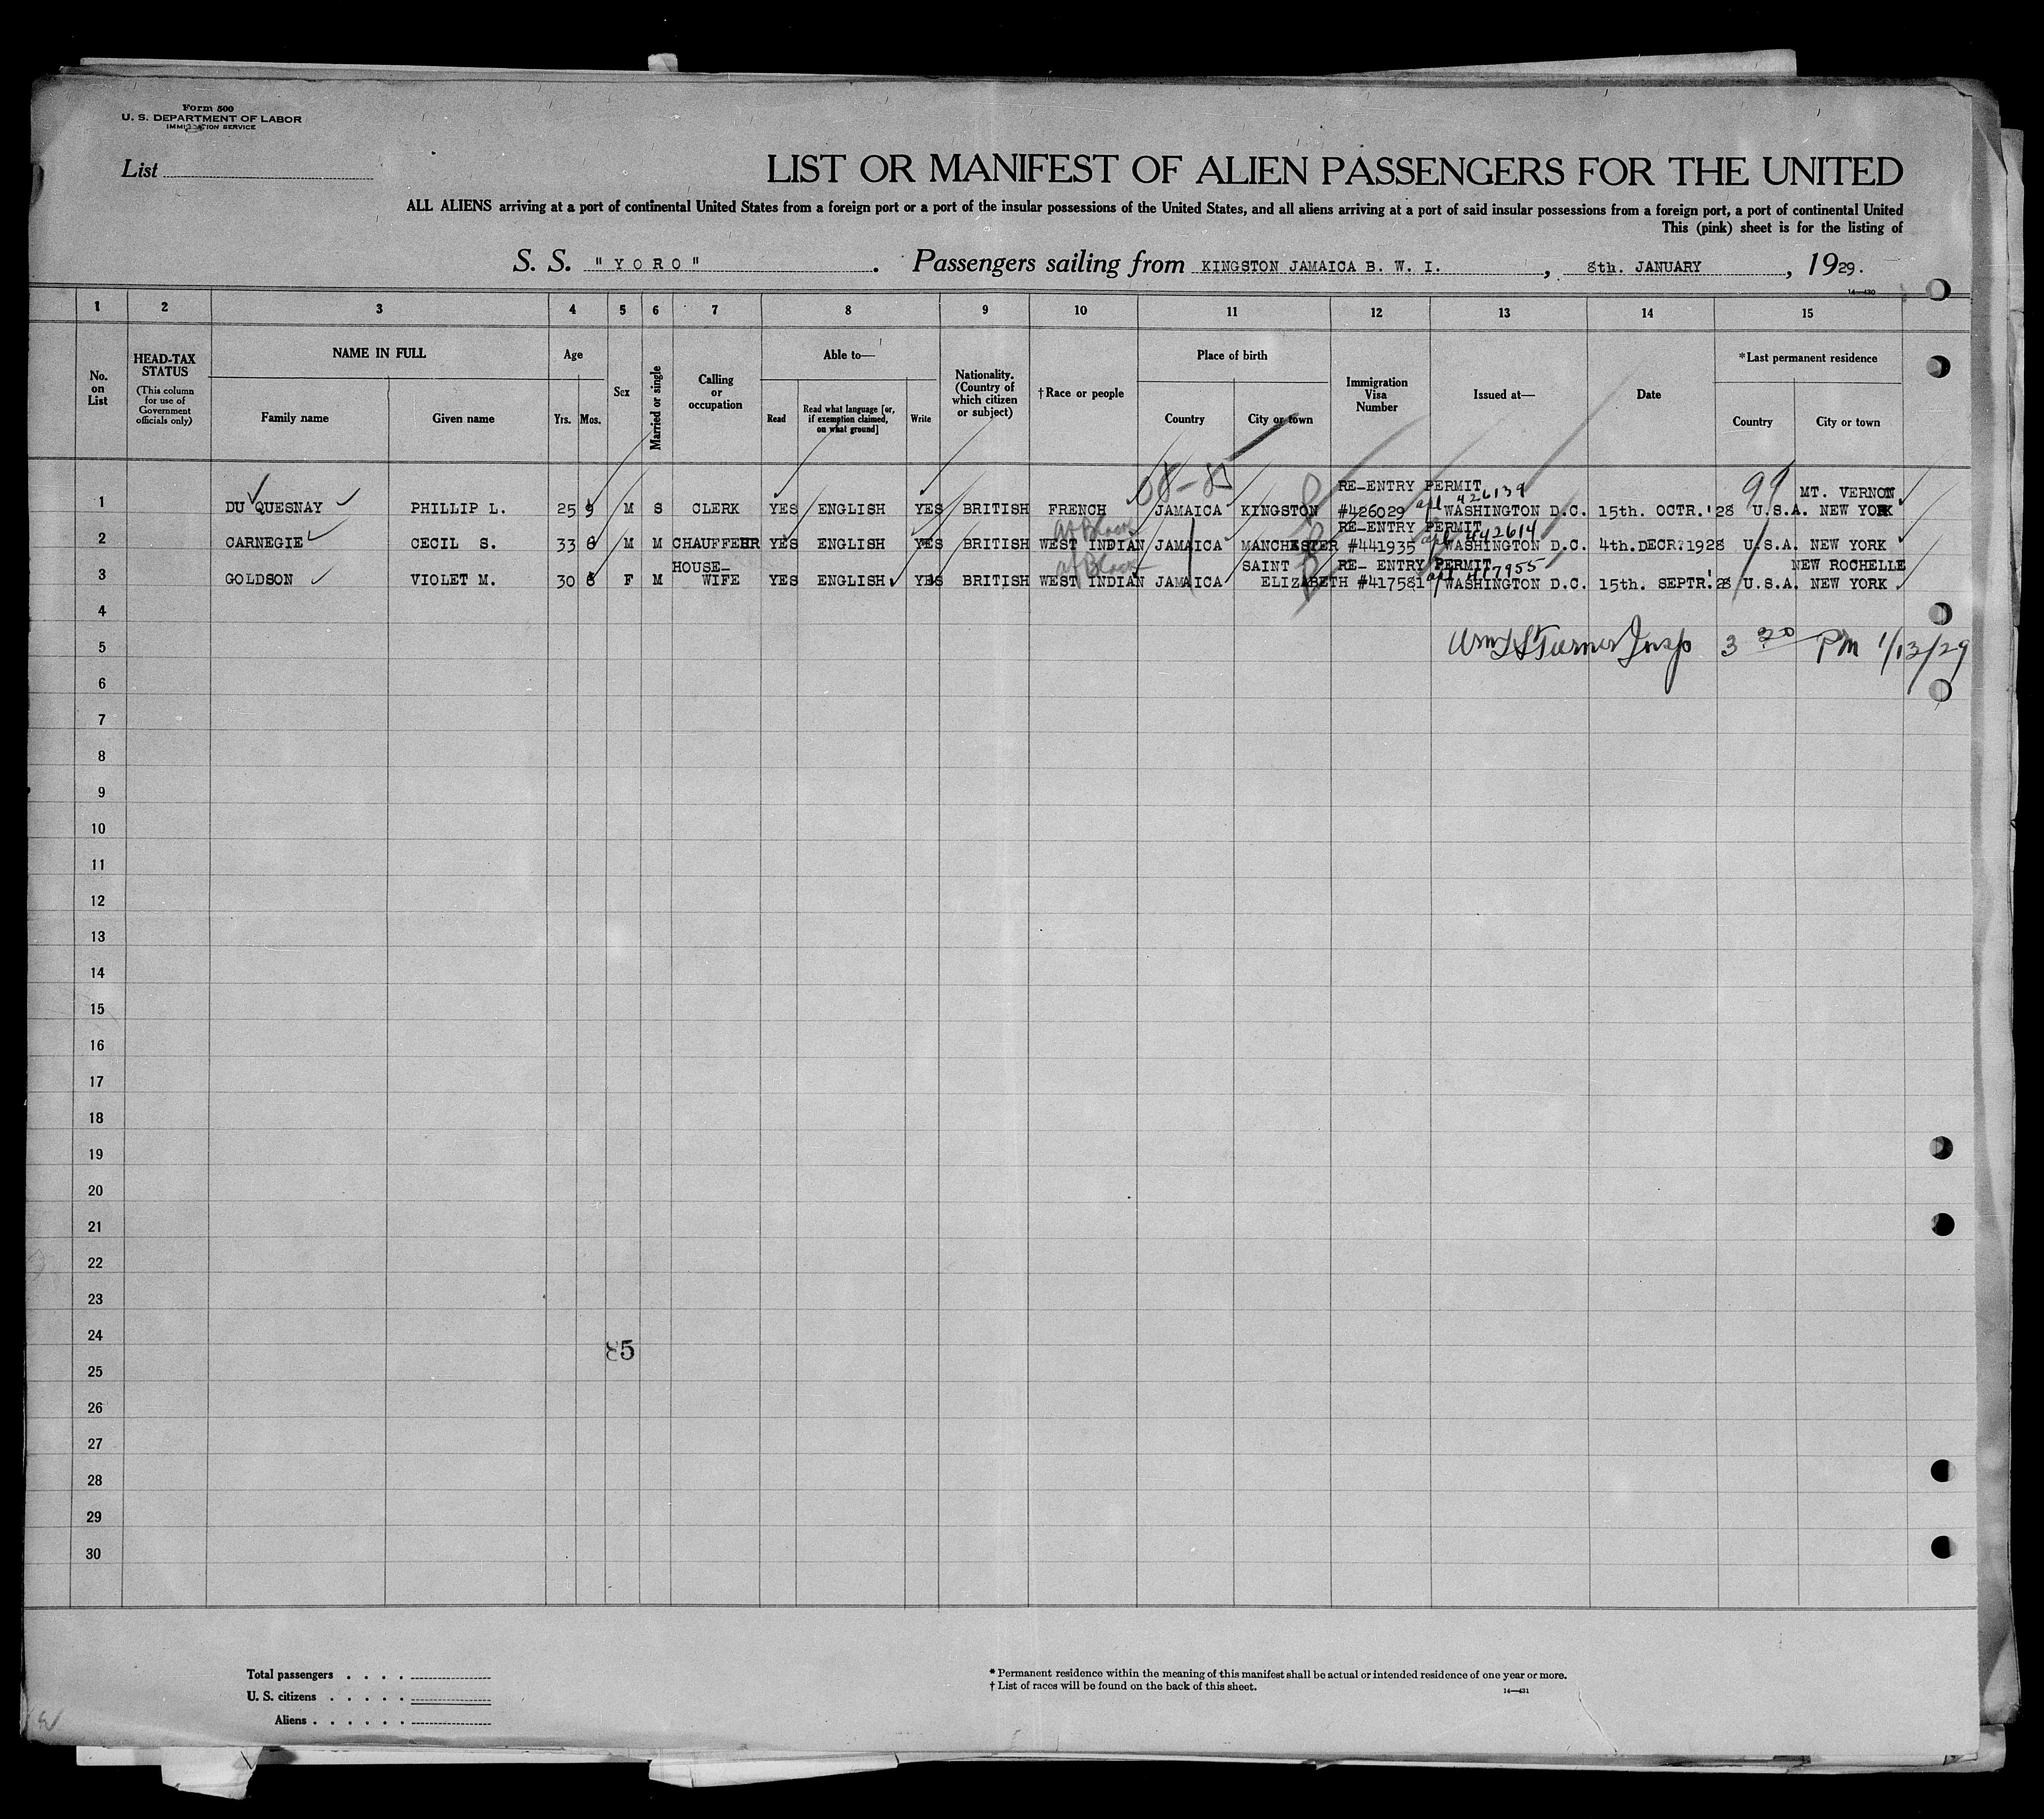 Form 500
U. S. DEPARTMENT OF LABOR
IMMIGRATION SERVICE
List
LIST OR MANIFEST OF ALIEN PASSENGERS FOR THE UNITED
ALL ALIENS arriving at a port of continental United States from a foreign port or a port of the insular possessions of the United States, and all aliens arriving at a port of said insular possessions from a foreign port, a port of continental United
This (pink) sheet is for the listing of
S. S. "YORO". Passengers sailing from KINGSTON JAMAICA B. W. I., 8th. JANUARY, 1929.
14—430
1 2 3 4 5 6 7 8 9 10 11 12 13 14 15
No. on List
HEAD-TAX STATUS
(This column for use of Government officials only)
NAME IN FULL
Family name Given name
Age
Yrs. Mos.
Sex
Married or single
Calling or occupation
Able to—
Read Read what language [or, if exemption claimed, on what ground] Write
Nationality. (Country of which citizen or subject)
†Race or people
Place of birth
Country City or town
Immigration Visa Number
Issued at—
Date
*Last permanent residence
Country City or town
08-85 99
RE-ENTRY PERMIT 426139 MT. VERNON
1 DU QUESNAY PHILLIP L. 25 9 M S CLERK YES ENGLISH YES BRITISH FRENCH JAMAICA KINGSTON #426029 WASHINGTON D.C. 15th. OCTR.'28 U.S.A. NEW YORK
af Black RE-ENTRY PERMIT 442614
2 CARNEGIE CECIL S. 33 6 M M CHAUFFEUR YES ENGLISH YES BRITISH WEST INDIAN JAMAICA MANCHESTER #441935 WASHINGTON D.C. 4th.DECR.1928 U.S.A. NEW YORK
HOUSE- af Black SAINT RE- ENTRY PERMIT 417955 NEW ROCHELLE
3 GOLDSON VIOLET M. 30 6 F M WIFE YES ENGLISH YES BRITISH WEST INDIAN JAMAICA ELIZABETH #417581 WASHINGTON D.C. 15th. SEPTR.'28 U.S.A. NEW YORK
4
5 Turner Insp 3 20 PM 1/13/29
6
7
8
9
10
11
12
13
14
15
16
17
18
19
20
21
22
23
24
85
25
26
27
28
29
30
Total passengers
U. S. citizens
Aliens
* Permanent residence within the meaning of this manifest shall be actual or intended residence of one year or more.
† List of races will be found on the back of this sheet.
14—431